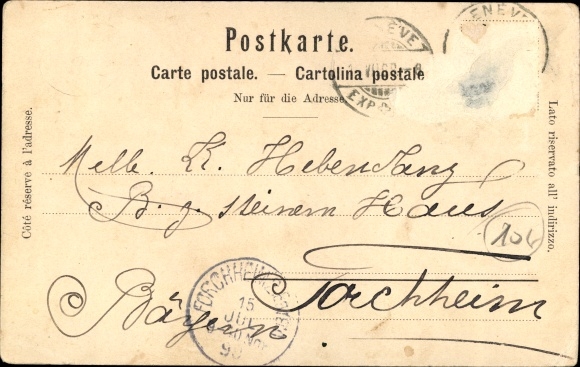 Postkarte.
Carte postale. — Cartolina postale
Nur für die Adresse.
Côté réservé à l'adresse.
Lato riservato all' indirizzo.
GENÈVE
EXP.
GENÈVE
Melle. K. Hebendanz
B. z. steinern Haus
104
Forchheim
Bayern
FORCHHEIM
15
JUL